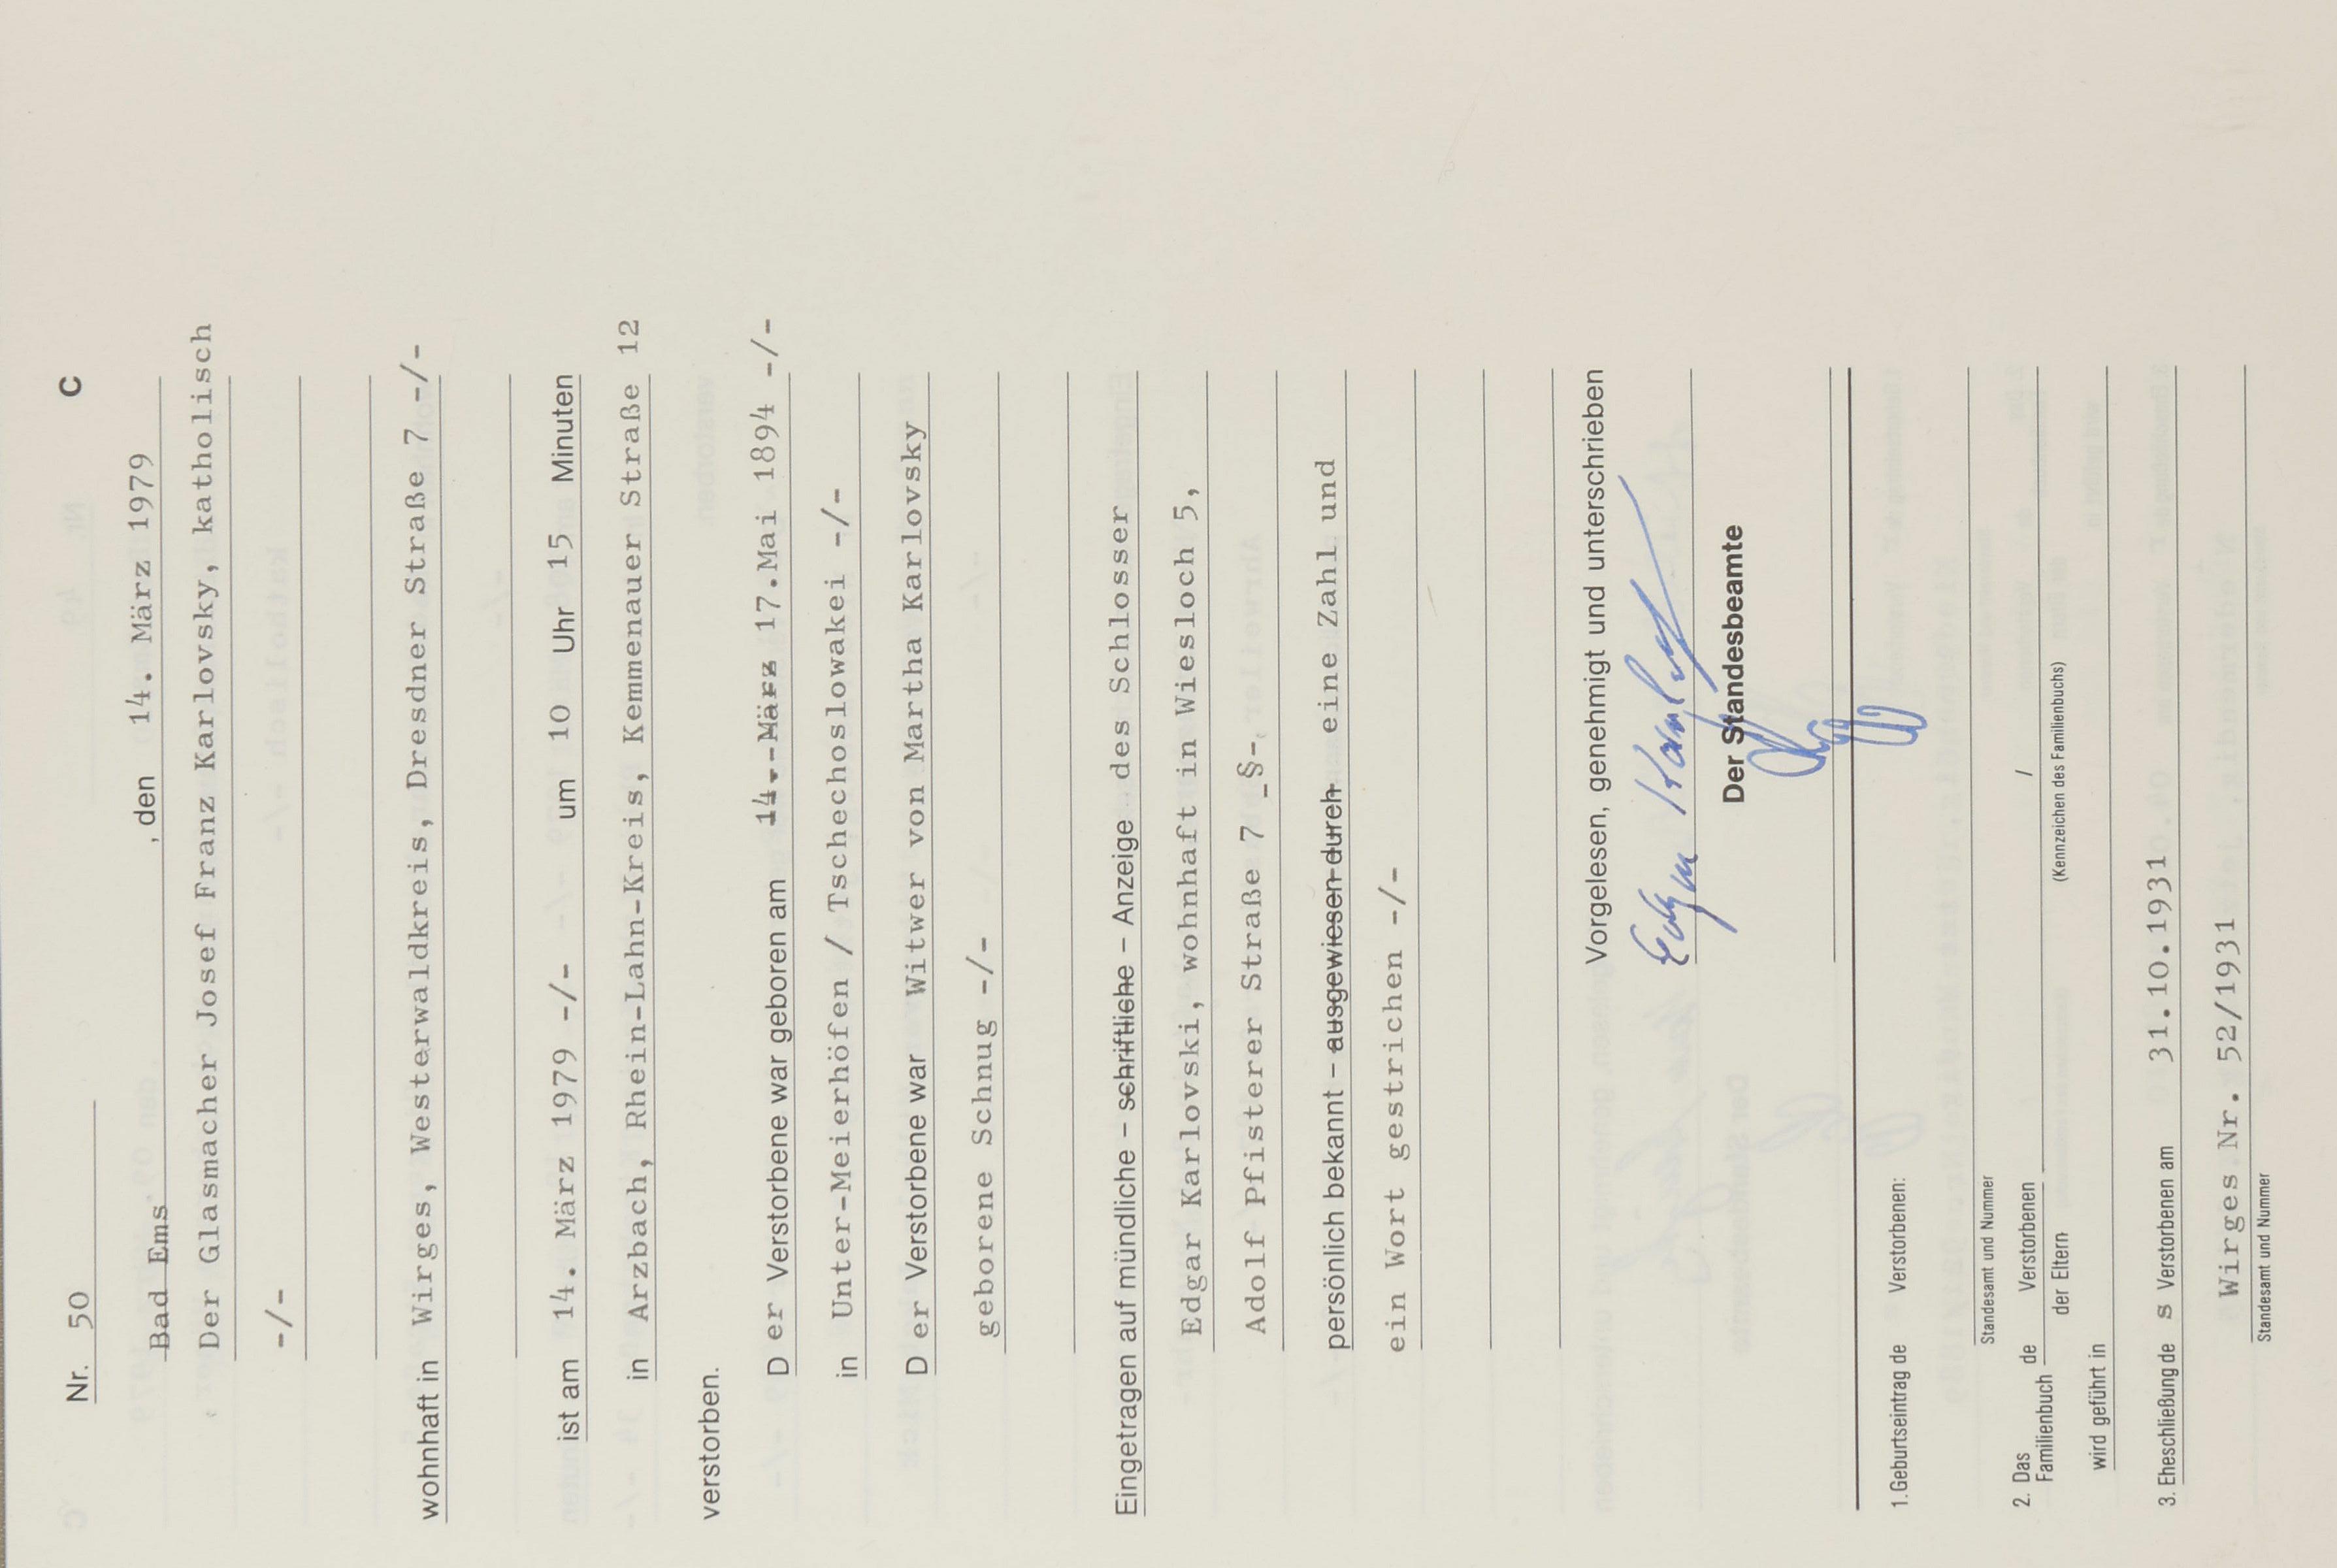 Nr. 50 C
Bad Ems , den 14. März 1979
Der Glasmacher Josef Franz Karlovsky, katholisch
-/-
wohnhaft in Wirges, Westerwaldkreis, Dresdner Straße 7 -/-
ist am 14. März 1979 -/- um 10 Uhr 15 Minuten
in Arzbach, Rhein-Lahn-Kreis, Kemmenauer Straße 12
verstorben.
D er Verstorbene war geboren am 14. März 17.Mai 1894 -/-
in Unter-Meierhöfen / Tschechoslowakei -/-
D er Verstorbene war Witwer von Martha Karlovsky
geborene Schnug -/-
Eingetragen auf mündliche – schriftliche – Anzeige des Schlosser
Edgar Karlovski, wohnhaft in Wiesloch 5,
Adolf Pfisterer Straße 7 -§-,
persönlich bekannt – ausgewiesen durch eine Zahl und
ein Wort gestrichen -/-
Vorgelesen, genehmigt und unterschrieben
Edgar Karlovski
Der Standesbeamte
1.Geburtseintrag de Verstorbenen:
Standesamt und Nummer
2. Das Familienbuch de Verstorbenen /
der Eltern (Kennzeichen des Familienbuchs)
wird geführt in
3. Eheschließung de s Verstorbenen am 31.10.1931
Wirges Nr. 52/1931
Standesamt und Nummer